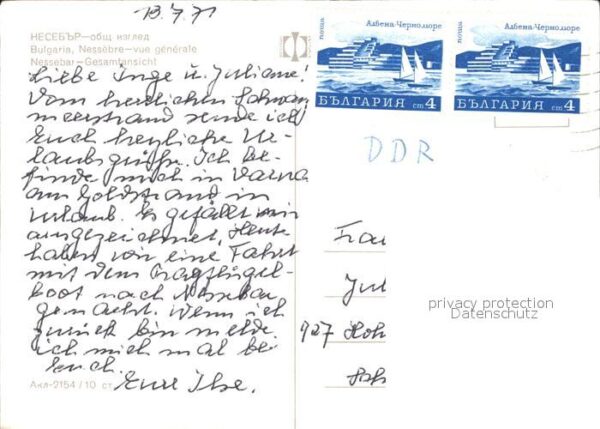 13.7.71
НЕСЕБЪР—общ изглед
Bulgaria, Nessèbre—vue générale
Nessebar—Gesamtansicht
Liebe Inge u. Juliane!
Vom herrlichen Schwarz
meerstrand sende ich
Euch herzliche Ur-
laubsgrüße. Ich be-
finde mich in Varna
am Goldstrand in
Urlaub. Es gefällt mir
ausgezeichnet. Heute
haben wir eine Fahrt
mit dem Tragflügel-
boot nach Nessebar
gemacht. Wenn ich
zurück bin melde
ich mich mal bei
Euch.
Eure Ilse.
Акл-2154/10 ст
поща Албена-Черноморе
БЪЛГАРИЯ ст 4
поща Албена-Черноморе
БЪЛГАРИЯ ст 4
DDR
Frau
Jul
927 Hoh
privacy protection
Datenschutz